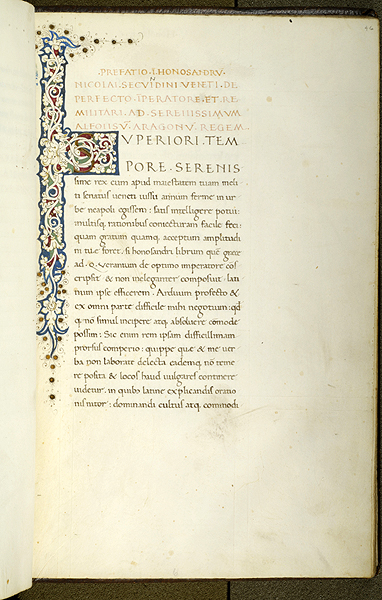 PREFATIO. I. HONOSANDRV.
NICOLAI. SECVNDINI VENETI. DE
PERFECTO. IPERATORE. ET. RE
MILITARI. AD. SERENISSIMVM
ALFONSV. ARAGONV. REGEM.
SVPERIORI. TEM
PORE. SERENIS
sime rex cum apud maiestatem tuam meli
ti senatus ueneti iussu annum ferme in ur
be neapoli egissem: satis intelligere potui:
multisq. rationibus coniecturam facile feci:
quam gratum quamq. acceptum amplitudi
ni tue foret, si honosandri librum quē grece
ad .Q. Veranium de optimo imperatore cō
scripsit & non ineleganter composuit, lati
num ipse efficerem. Arduum profecto &
ex omni parte difficile mihi negotium: qd
q nō simul incipere atq. absoluere cōmode
possim: Sic enim rem ipsam difficillimam
prorsus comperio: quippe que & me uer
ba non laborate delecta eademq. nō teme
re posita & locos haud uulgares continere
uidetur, in quibꝫ latine explicandis oratio
nis nitor: dominandi cultus atq. commodi